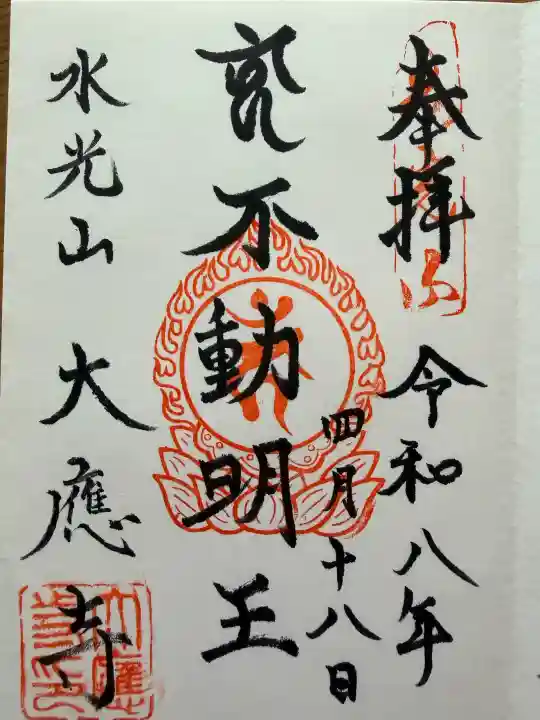 奉拝
令和八年
四月十八日
不動明王
水光山 大應寺